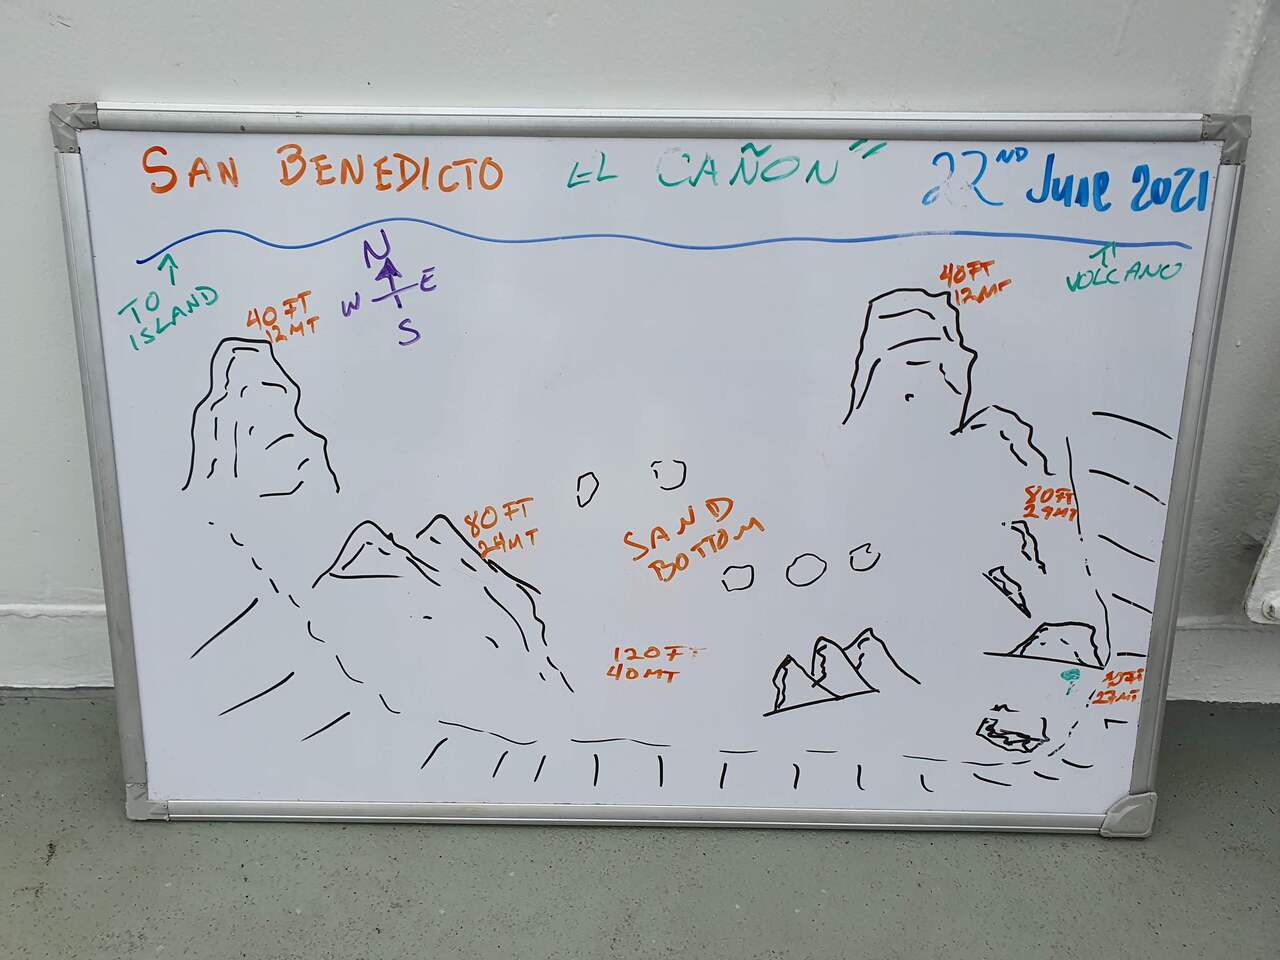 SAN BENEDICTO EL CAÑON" 22ND June 2021
TO
ISLAND
N
W E
S
VOLCANO
40FT
12MT
40FT
12MT
80FT
24MT
80FT
24MT
SAND
BOTTOM
120FT
40MT
27MT